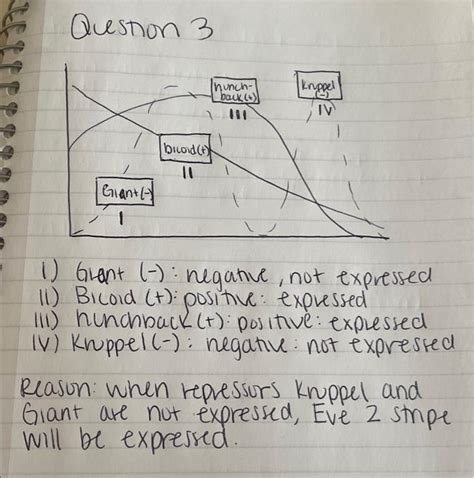 Question 3
hunch-
back(+)
III
Kruppel
(-)
IV
bicoid(+)
II
Giant(-)
I
I) Giant (-): negative, not expressed
II) Bicoid (+): positive: expressed
III) hunchback (+): positive: expressed
IV) Kruppel (-): negative: not expressed
Reason: when repressors Kruppel and
Giant are not expressed, Eve 2 stripe
will be expressed.